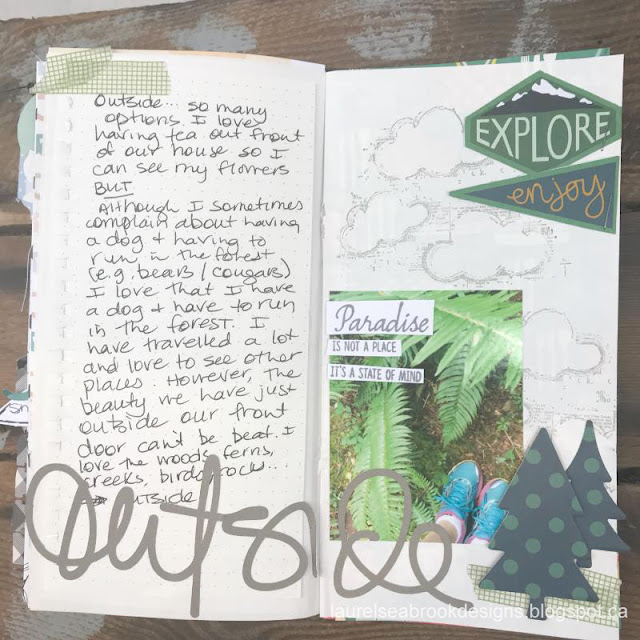 Outside... so many
options. I loves
having tea out front
of our house so I
can see my flowers
BUT
Although I sometimes
complain about having
a dog + having to
run in the forest
(e.g. bears / cougars)
I love that I have
a dog + have to run
in the forest. I
have travelled a lot
and love to see other
places. However, the
beauty we have just
outside our front
door can't be beat. I
love the woods, ferns,
creeks, birds, rocks...
outside
outside
EXPLORE
enjoy
Paradise
IS NOT A PLACE
IT'S A STATE OF MIND
laurelseabrookdesigns.blogspot.ca